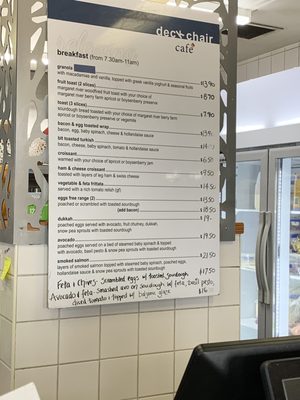 deckchair
café
breakfast (from 7.30am-11am)
granola
with macadamias and vanilla, topped with greek vanilla yoghurt & seasonal fruits
fruit toast (2 slices)
margaret river woodfired fruit toast with your choice of
margaret river berry farm apricot or boysenberry preserve $8.70
toast (3 slices)
sourdough bread toasted with your choice of margaret river berry farm
apricot or boysenberry preserve or vegemite $7.90
bacon & egg toasted wrap
bacon, egg, baby spinach, cheese & hollandaise sauce
blt toasted turkish
bacon, cheese, baby spinach, tomato & hollandaise sauce
croissant
warmed with your choice of apricot or boysenberry jam $6.50
ham & cheese croissant
toasted with layers of leg ham & swiss cheese $9.50
vegetable & feta frittata
served with a rich tomato relish (gf) $14.50
eggs free range (2) $13.50
poached or scrambled with toasted sourdough
(add bacon) $18.50
dukkah
poached eggs served with avocado, fruit chutney, dukkah,
snow pea sprouts with toasted sourdough
avocado
poached eggs served on a bed of steamed baby spinach & topped
with avocado, basil pesto & snow pea sprouts with toasted sourdough $19.50
smoked salmon
layers of smoked salmon topped with steamed baby spinach, poached eggs,
hollandaise sauce & snow pea sprouts with toasted sourdough $21.50
Feta & Chives - Scrambled eggs w toasted sourdough $17.50
Avocado & Feta - Smashed avo on sourdough w feta, basil pesto,
diced tomato & topped w balsamic glaze